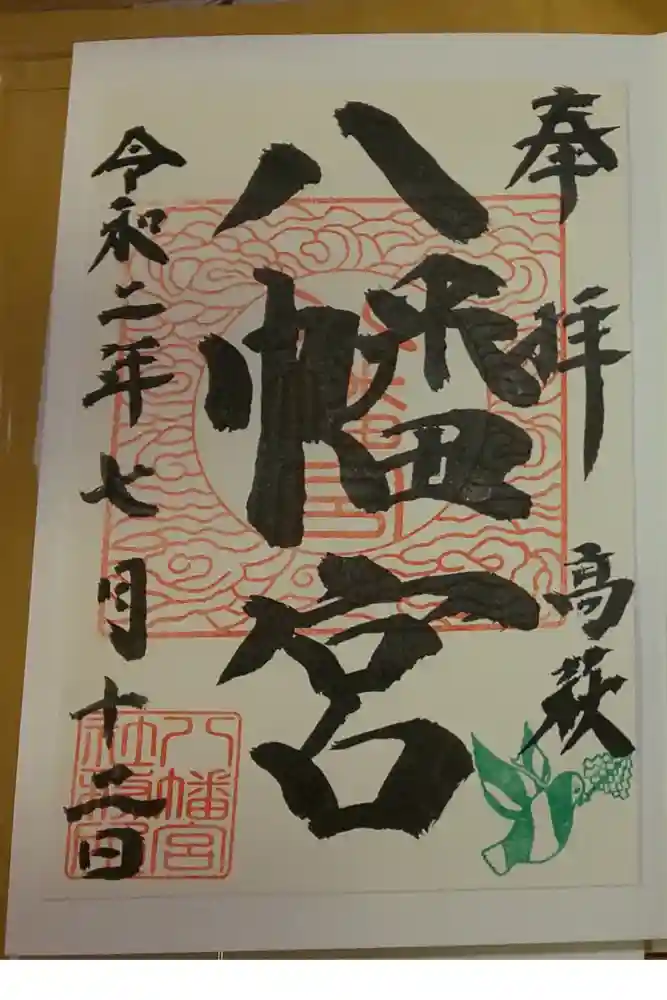 奉拝
高萩
八幡宮
令和二年七月十二日
八幡宮